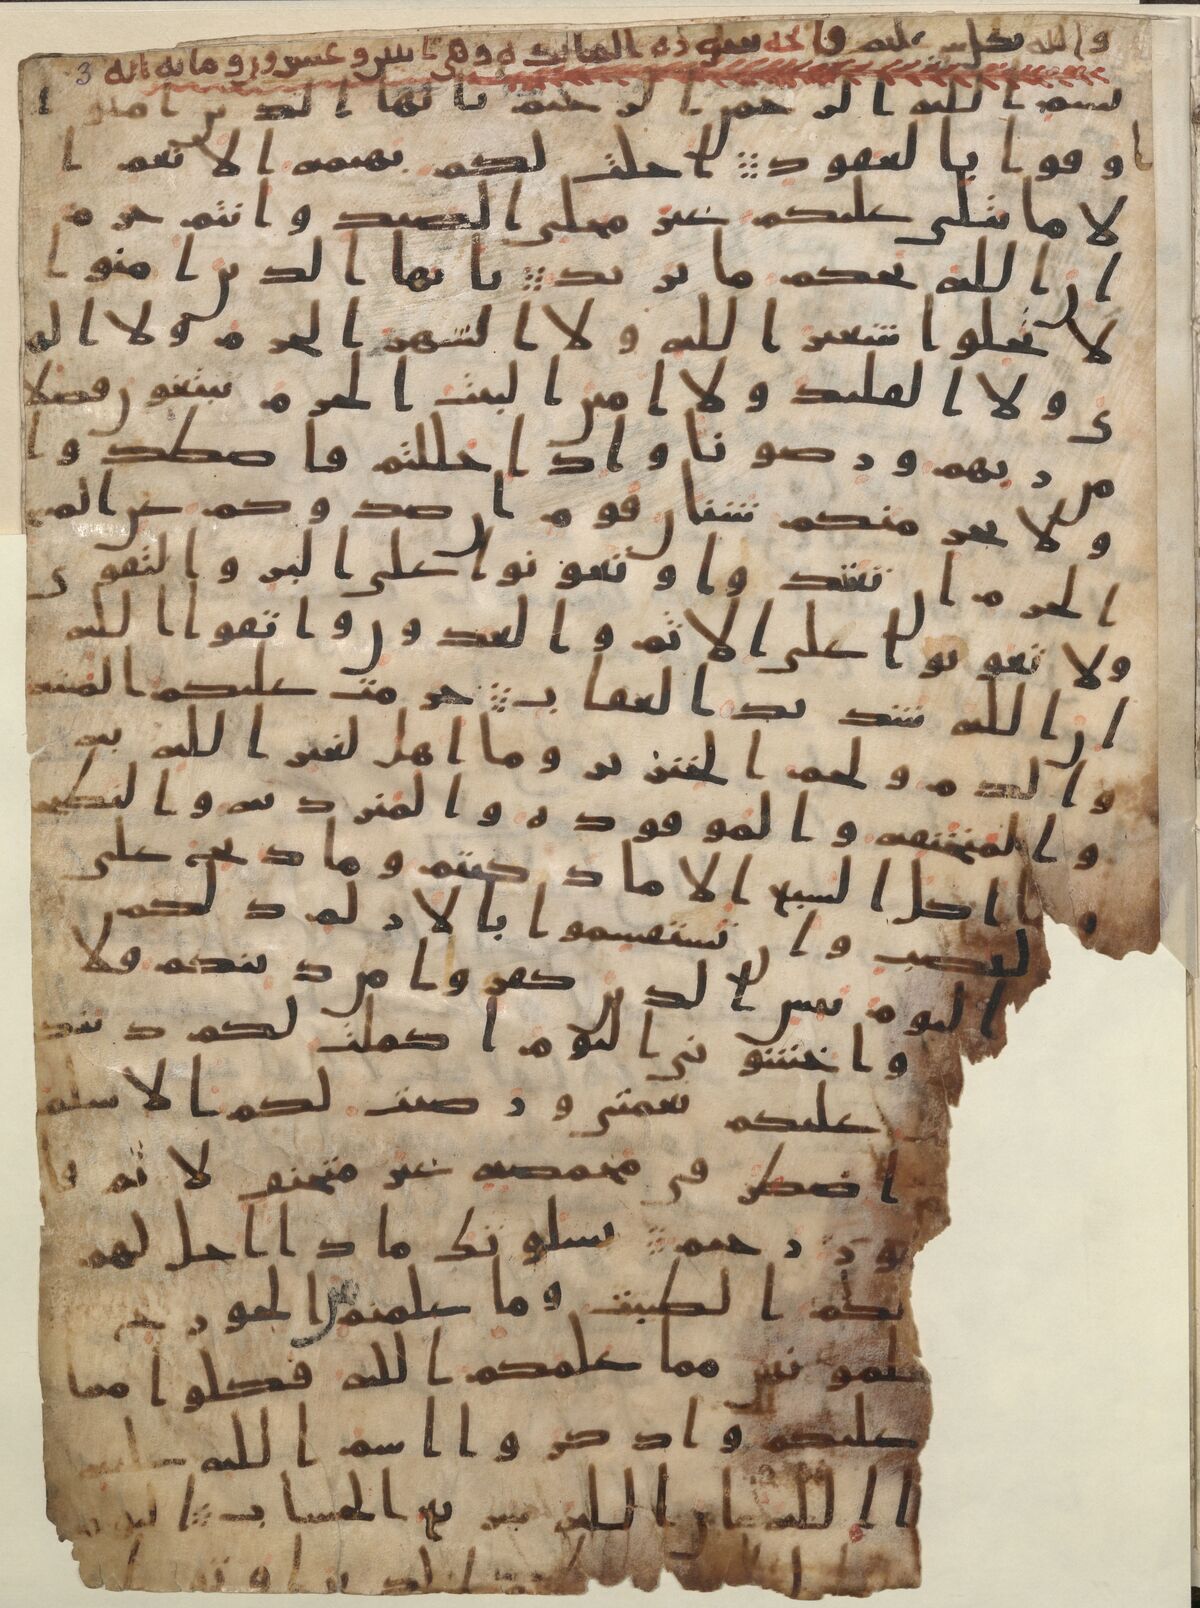 فاتحه سوره المايده وهي وعشرون ومايه ايه
3
بسم الله الرحمن الرحيم يايها الذين امنوا ا
وفوا بالعقود احلت لكم بهيمه الانعم ا
لا ما يتلى عليكم غير محلى الصيد وانتم حرم
ان الله يحكم ما يريد يايها الذين امنوا
لا تحلوا شعير الله ولا الشهر الحرم ولا الهد
ى ولا القليد ولا امين البيت الحرم يبتغون فضلا
من ربهم ورضونا واذا حللتم فاصطدوا
ولا يجرمنكم شنان قوم ان صدوكم عن المسجد
الحرم ان تعتدوا وتعونوا على البر والتقوى
ولا تعونوا على الاثم والعدون واتقوا الله
ان الله شديد العقاب حرمت عليكم الميته
والدم ولحم الخنزير وما اهل لغير الله به
والمنخنقه والموقوذه والمتردیه والنطيحه
وما اكل السبع الا ما ذكيتم وما ذبح على
النصب وان تستقسموا بالازلم ذلكم
اليوم يئس الذين كفروا من دينكم فلا
واخشون اليوم اكملت لكم دينكم
عليكم نعمتى ورضيت لكم الاسلم
اضطر فى مخمصه غير متجنف لاثم فا
ور رحيم يسلونك ماذا احل لهم
لكم الطيبت وما علمتم من الجورح
تعلمونهن مما علمكم الله فكلوا مما
عليكم واذكروا اسم الله عليه
ا الله ان الله سريع الحساب اليوم